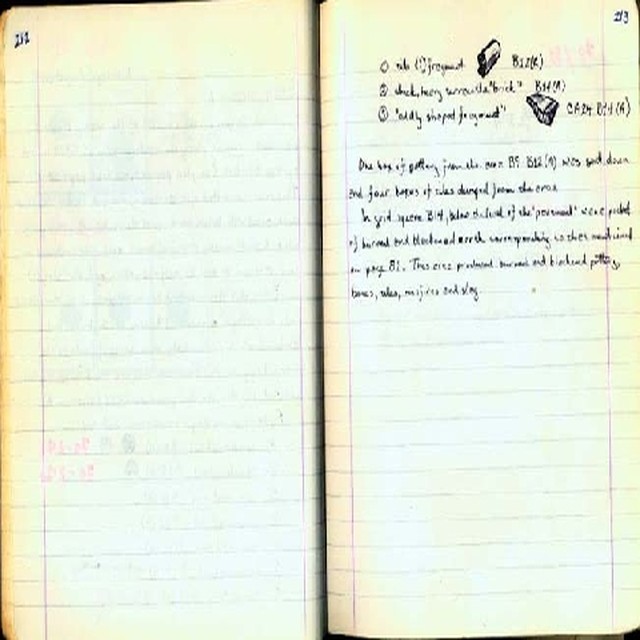 212
213
① tile (?) fragment B12(A)
② "brick" B14(A)
③ "oddly shaped fragment" B14(A)
One box of pottery from the area B9-B12(A) was sent down
and four boxes of tiles dumped from the area.
In grid square B14, below the level of the "pavement" were pockets
of burned and blackened earth corresponding to that mentioned
on page 81. This area produced burned and blackened pottery,
bones, tiles, and slag.